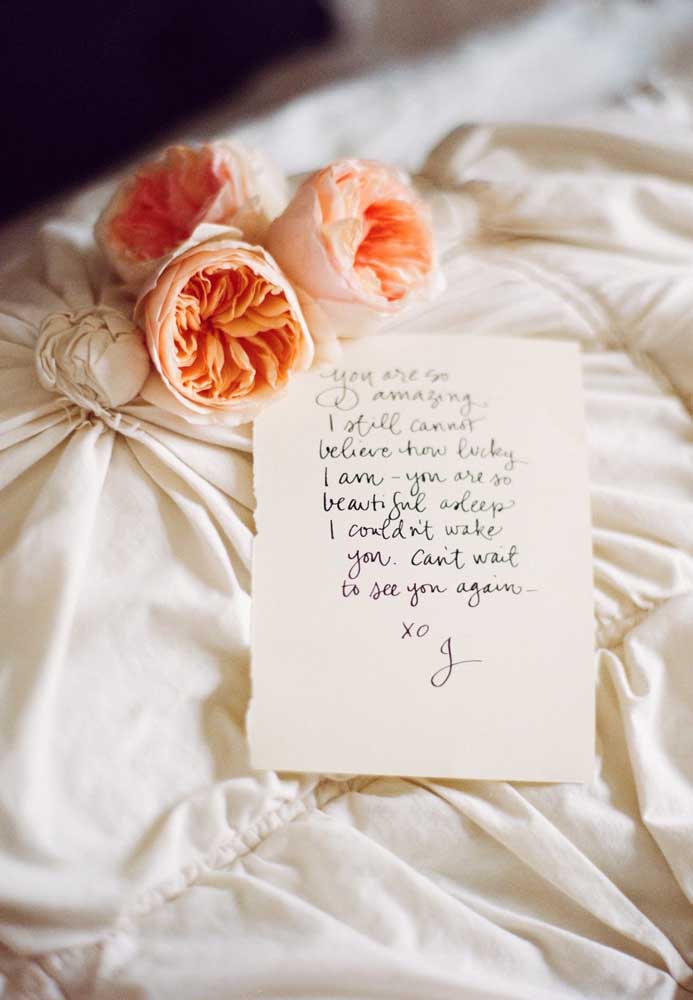 you are so
amazing.
I still cannot
believe how lucky
I am - you are so
beautiful asleep
I couldn't wake
you. Can't wait
to see you again -
xo
J